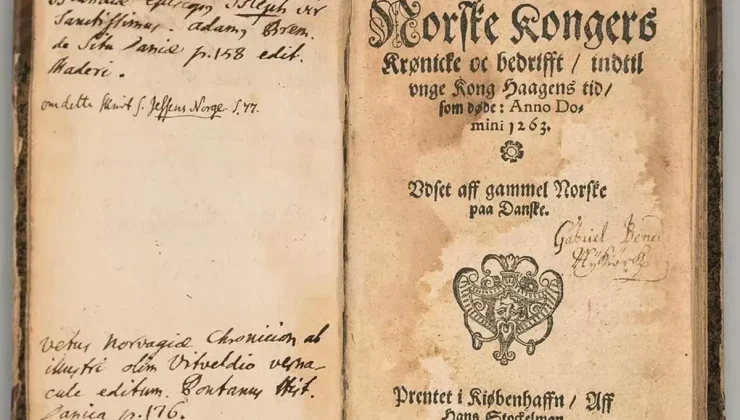 Islandiæ episcopus Isleph vir
Sanctissimus. adam, Brem.
de Situ Daniæ p. 158 edit.
Maderi.
om dette skrivt s. Jessens Norge S. 77.
vetus Norvagiæ Chronicion ab
illustri olim Vitveldio verna-
cule editum. Pontanus Hist.
Danica p. 176.
Norske Kongers
Krønicke oc bedrifft / indtil
vnge Kong Haagens tid /
som døde: Anno Do-
mini 1263.
Vdset aff gammel Norske
paa Danske.
Gabriel
Prentet i Kiøbenhaffn / Aff
Hans Stockelman